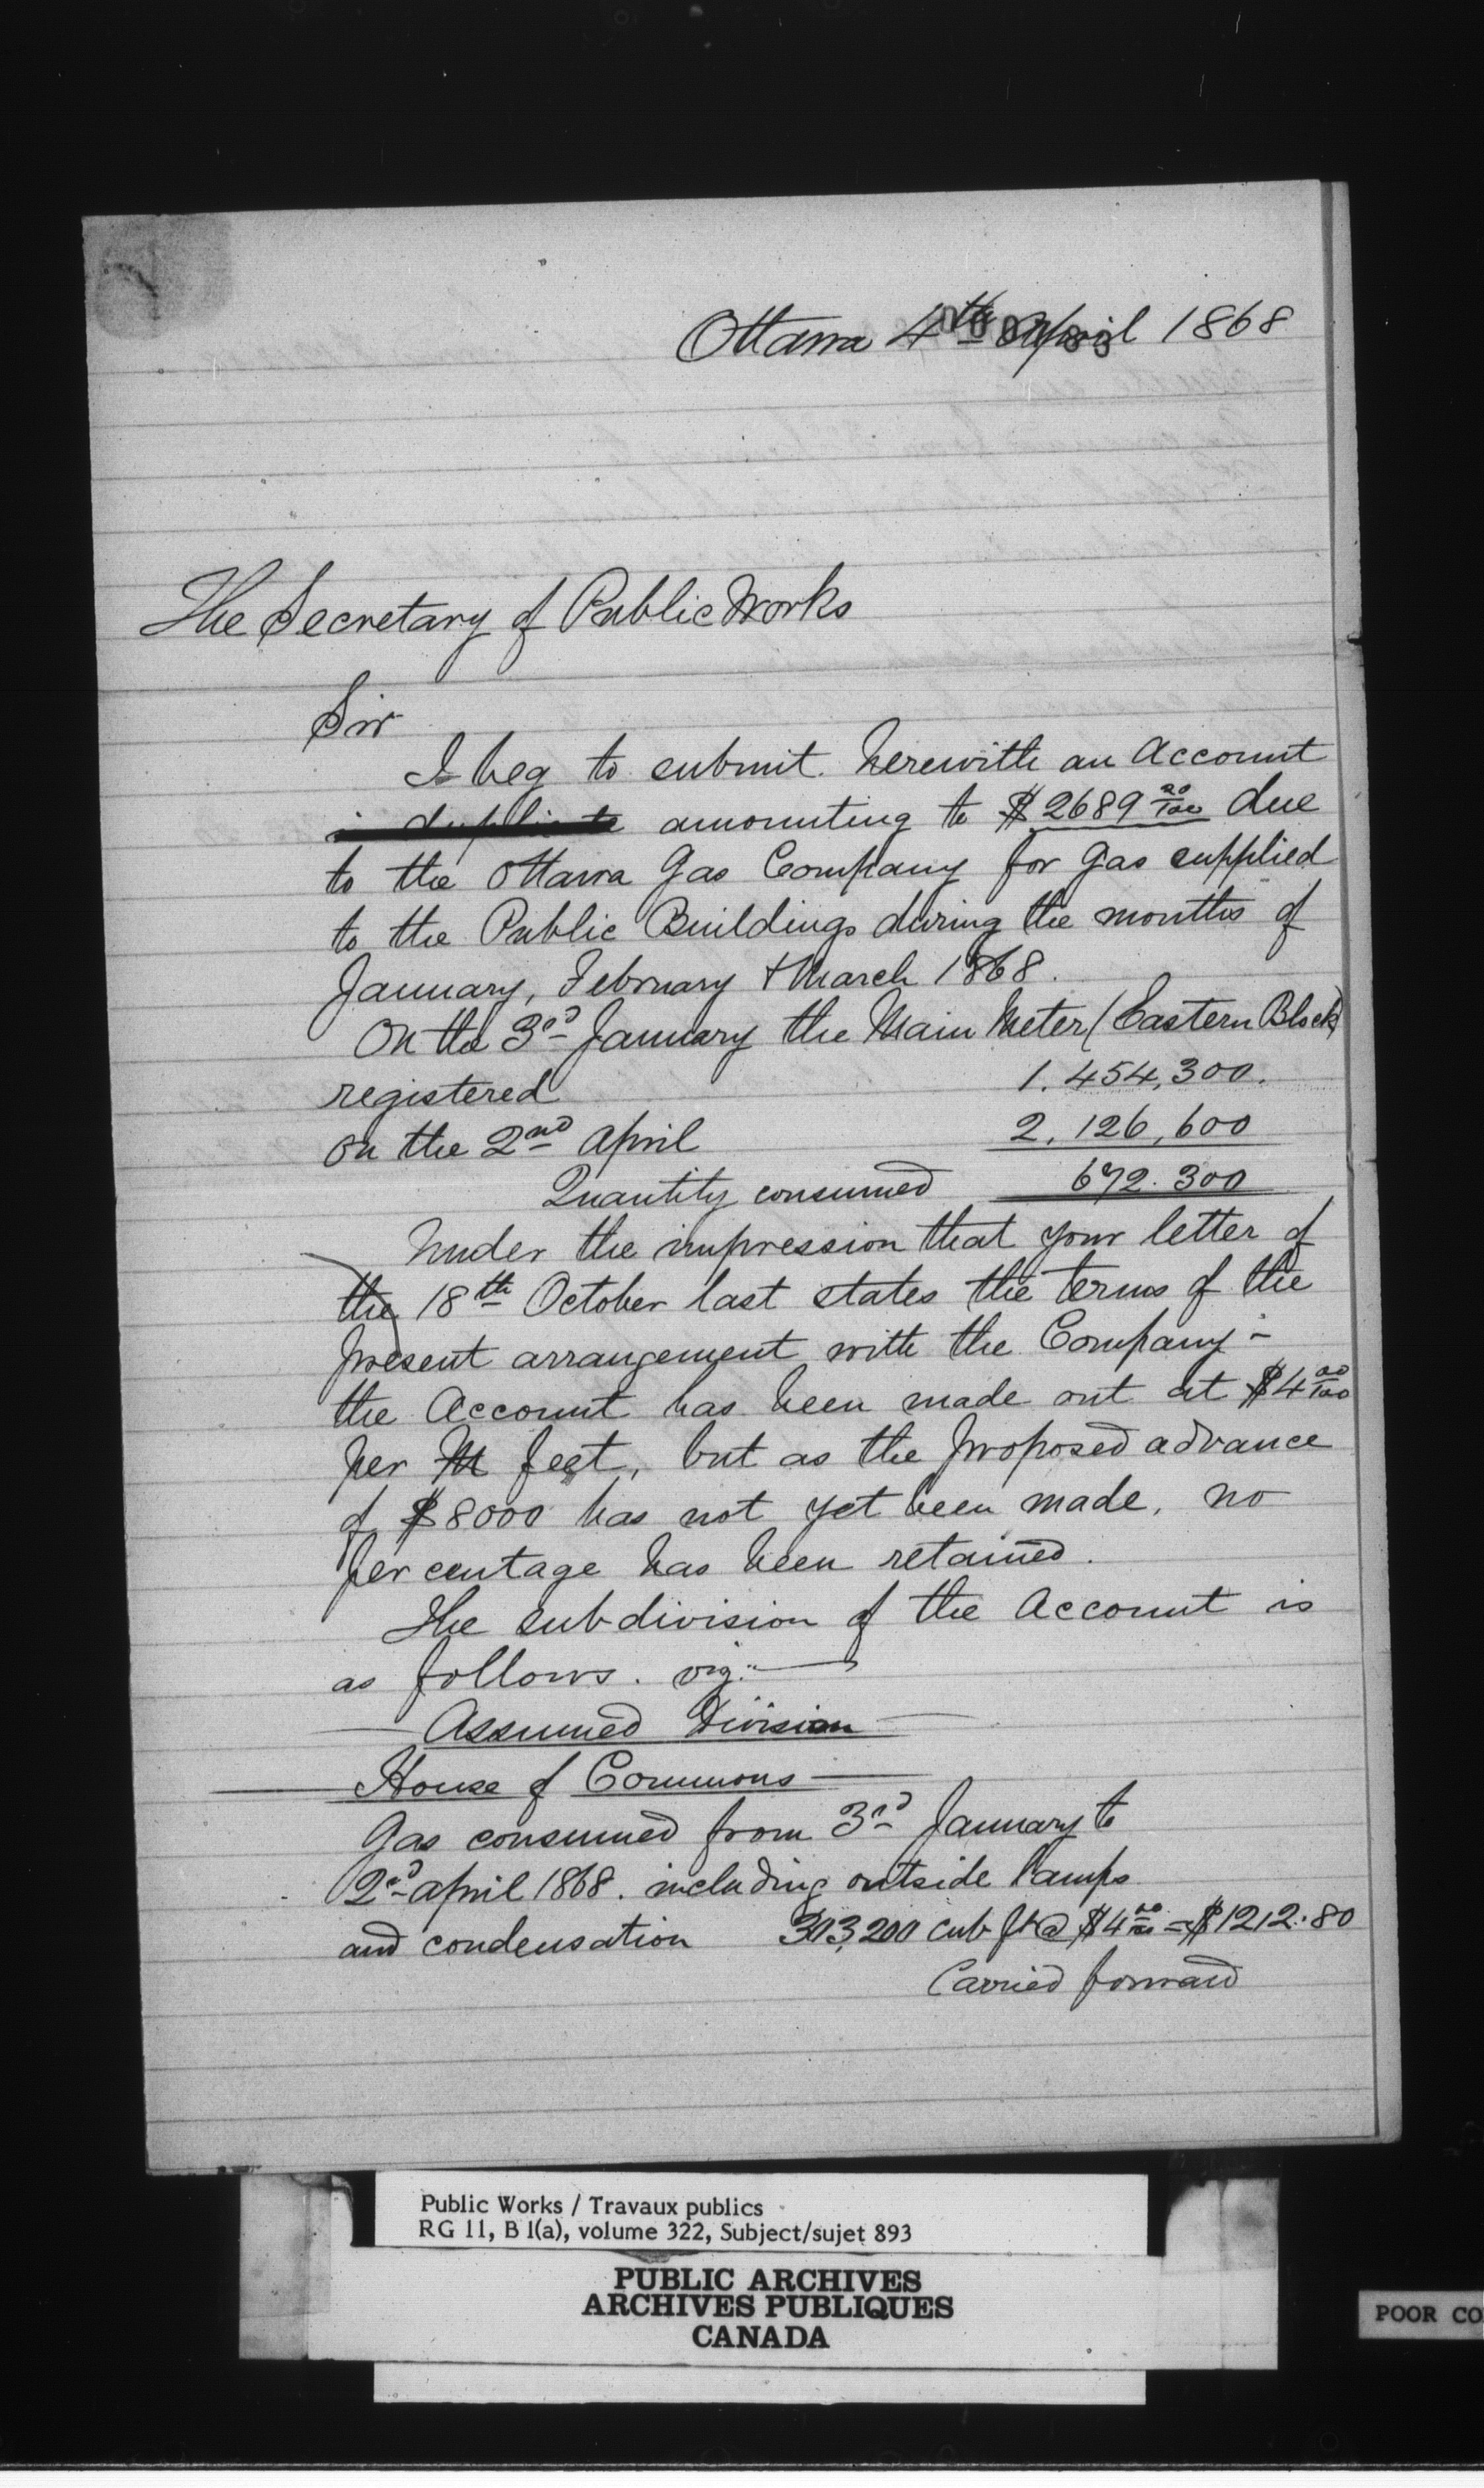 Ottawa 4th April 1868
The Secretary of Public Works
Sir
I beg to submit herewith an Account
in duplicate amounting to $2689 20/100 due
to the Ottawa Gas Company for Gas supplied
to the Public Buildings during the months of
January, February & March 1868.
On the 3rd January the Main Meter (Eastern Block)
registered 1.454,300.
On the 2nd April 2,126,600
Quantity consumed 672.300
Under the impression that your letter of
the 18th October last states the terms of the
present arrangement with the Company -
the Account has been made out at $4 00/100
per M feet, but as the proposed advance
of $8000 has not yet been made, no
per centage has been retained.
The subdivision of the Account is
as follows. viz:-
Assumed Division
House of Commons
Gas consumed from 3rd January to
2nd April 1868. including outside lamps
and condensation 303,200 cub ft @ $4 00/100 = $1212.80
Carried forward
Public Works / Travaux publics
RG 11, B 1(a), volume 322, Subject/sujet 893
PUBLIC ARCHIVES
ARCHIVES PUBLIQUES
CANADA
POOR CO